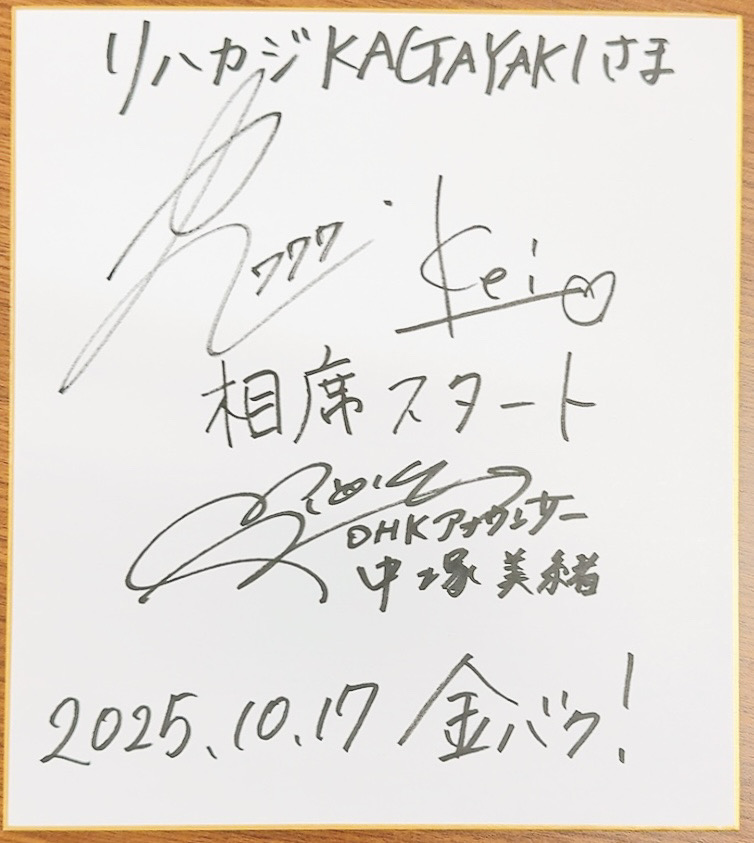 リハカジKAGAYAKIさま
777 Kei
相席スタート
OHKアナウンサー
中塚美緒
2025.10.17 金バク!